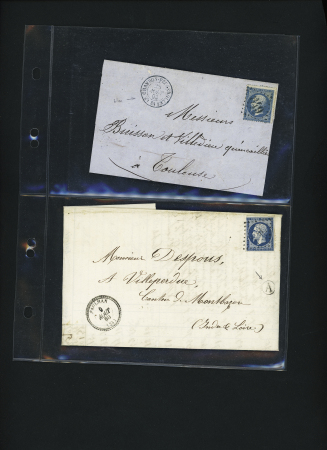 Messieurs
Buisson et Villedieu quincailliers
à Toulouse
Monsieur Despous,
A Villeperdue,
Canton de Montbazon
(Indre & Loire)
A